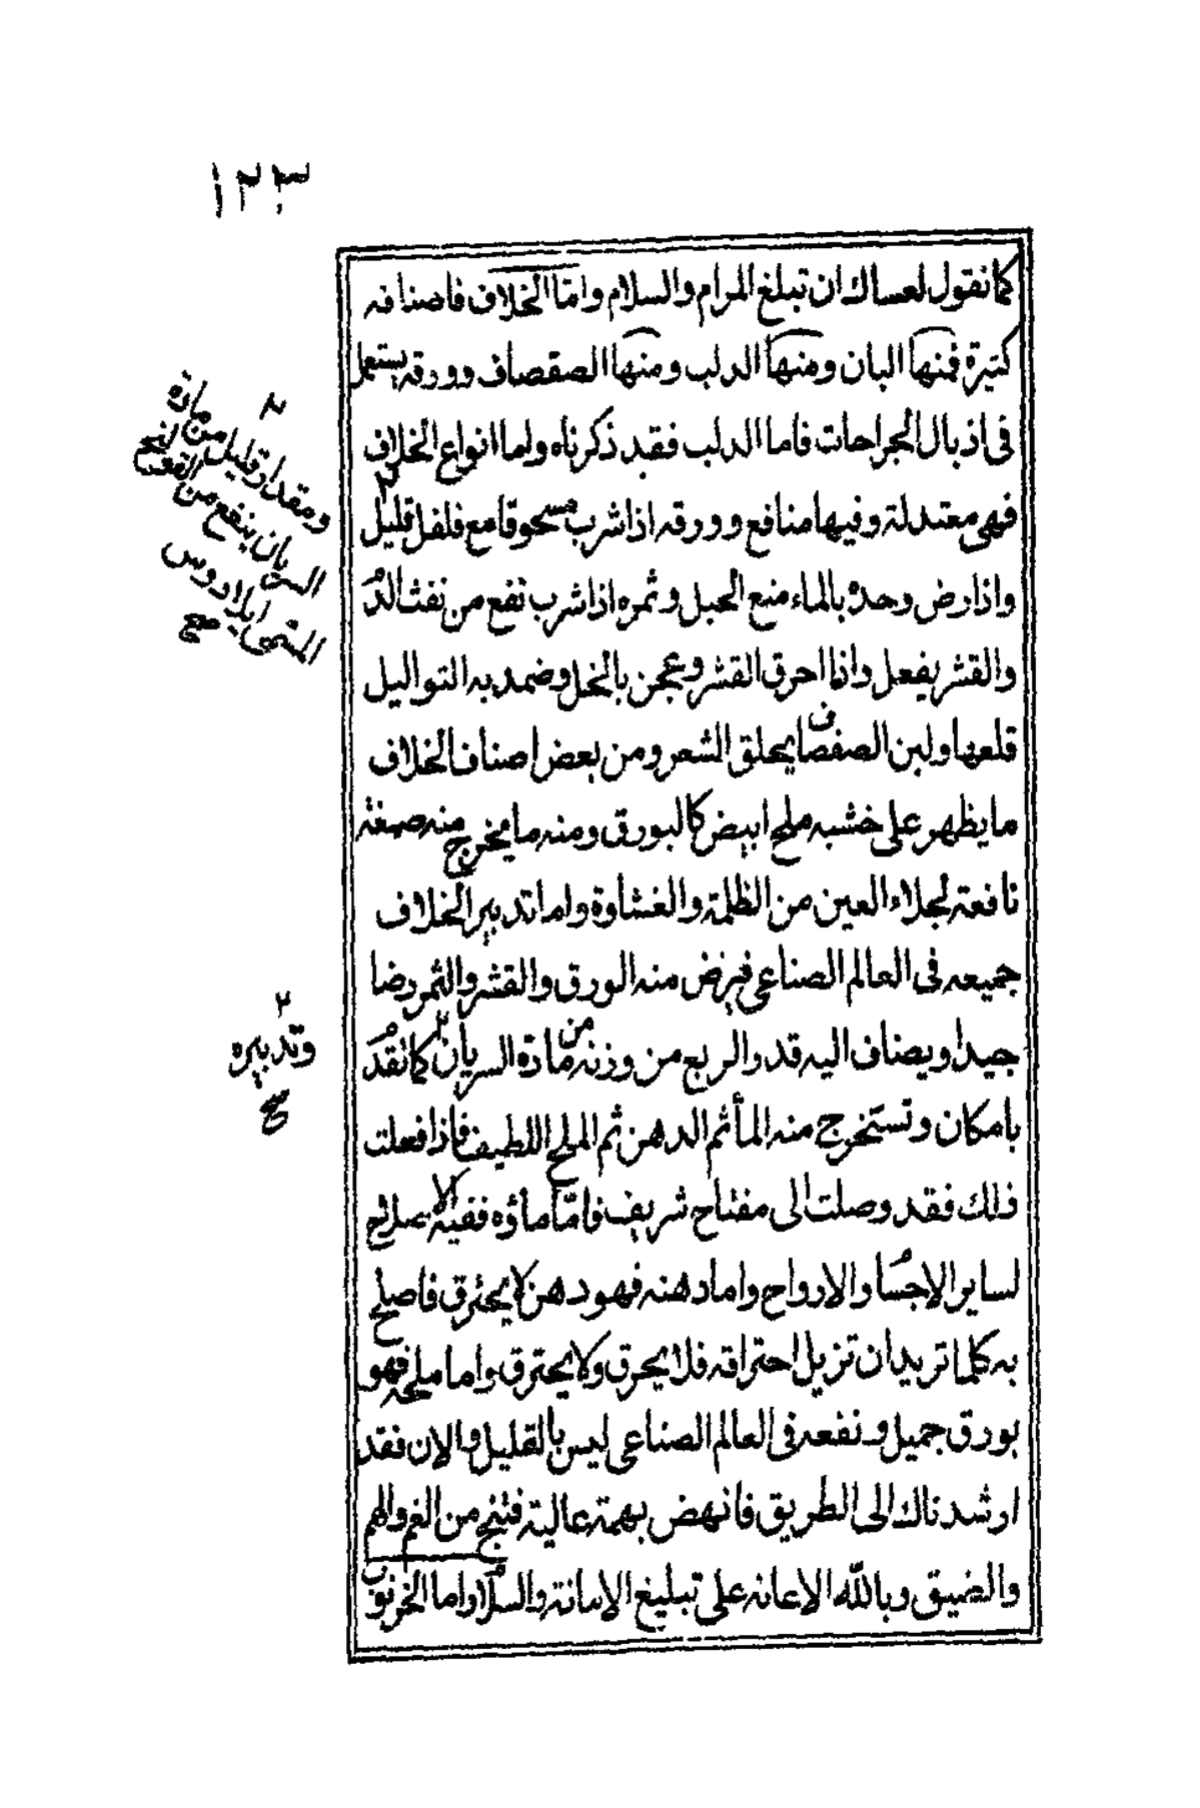 ١٢٣
كما نقول لعساك ان تبلغ المرام والسلام واما الخلاف فاصنافه
كثيرة فمنها البان ومنها الدلب ومنها الصفصاف وورقه يستعمل
فى اذبال الجراحات فاما الدلب فقد ذكرناه واما انواع الخلاف
فهى معتدلة وفيها منافع وورقه اذا شرب مسحوقا مع فلفل قليل
واذا رض وحده بالماء منع الحبل وثمره اذا شرب نفع من نفث الدم
والقشر يفعل واذا احرق القشر وعجن بالخل وضمد به التواليل
قلعها ولبن الصفصاف يحلق الشعر ومن بعض اصناف الخلاف
ما يظهر على خشبه ملح ابيض كالبورق ومنه ما يخرج منه صمغة
نافعة لجلاء العين من الظلمة والغشاوة واما تدبير الخلاف
جميعه فى العالم الصناعى فيرض منه الورق والقشر والثمر رضا
جيدا ويضاف اليه قدر الربع من وزنه من مادة السريان كما تقدم
بامكان وتستخرج منه الماء ثم الدهن ثم الملح اللطيف فاذا فعلت
ذلك فقد وصلت الى مفتاح شريف فاما ماؤه ففيه الاصلاح
لساير الاجسام والارواح واما دهنه فهو دهن لا يحترق فاصلح
به كلما تريد ان تزيل احتراقه فلا يحرق ولا يحترق واما ملحه فهو
بورق جميل ونفعه فى العالم الصناعى ليس بالقليل والان فقد
ارشدناك الى الطريق فانهض بهمة عالية فتنج من الغم والهم
والضيق وبالله الاعانه على تبليغ الامانة والسلام واما الخرنوب
٢
ومقدار قليل من مادة
السريان ينفع من القولنج
المسمى ايلاروس
صح
٢
وتدبيره
صح